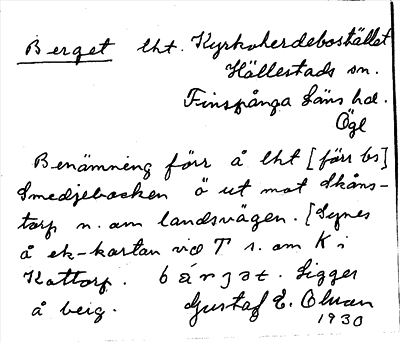 Berget lht. Kyrkoherdebostället
Hällestads sn.
Finspånga läns hd.
Ögl
Benämning förr å lht [förr bs]
Smedjebacken ö ut mot Skåns-
torp n. om landsvägen. [Synes
å ek-kartan vid T s. om K i
Kattorp. bärjət. Ligger
å berg. Gustaf E. Olman
1930